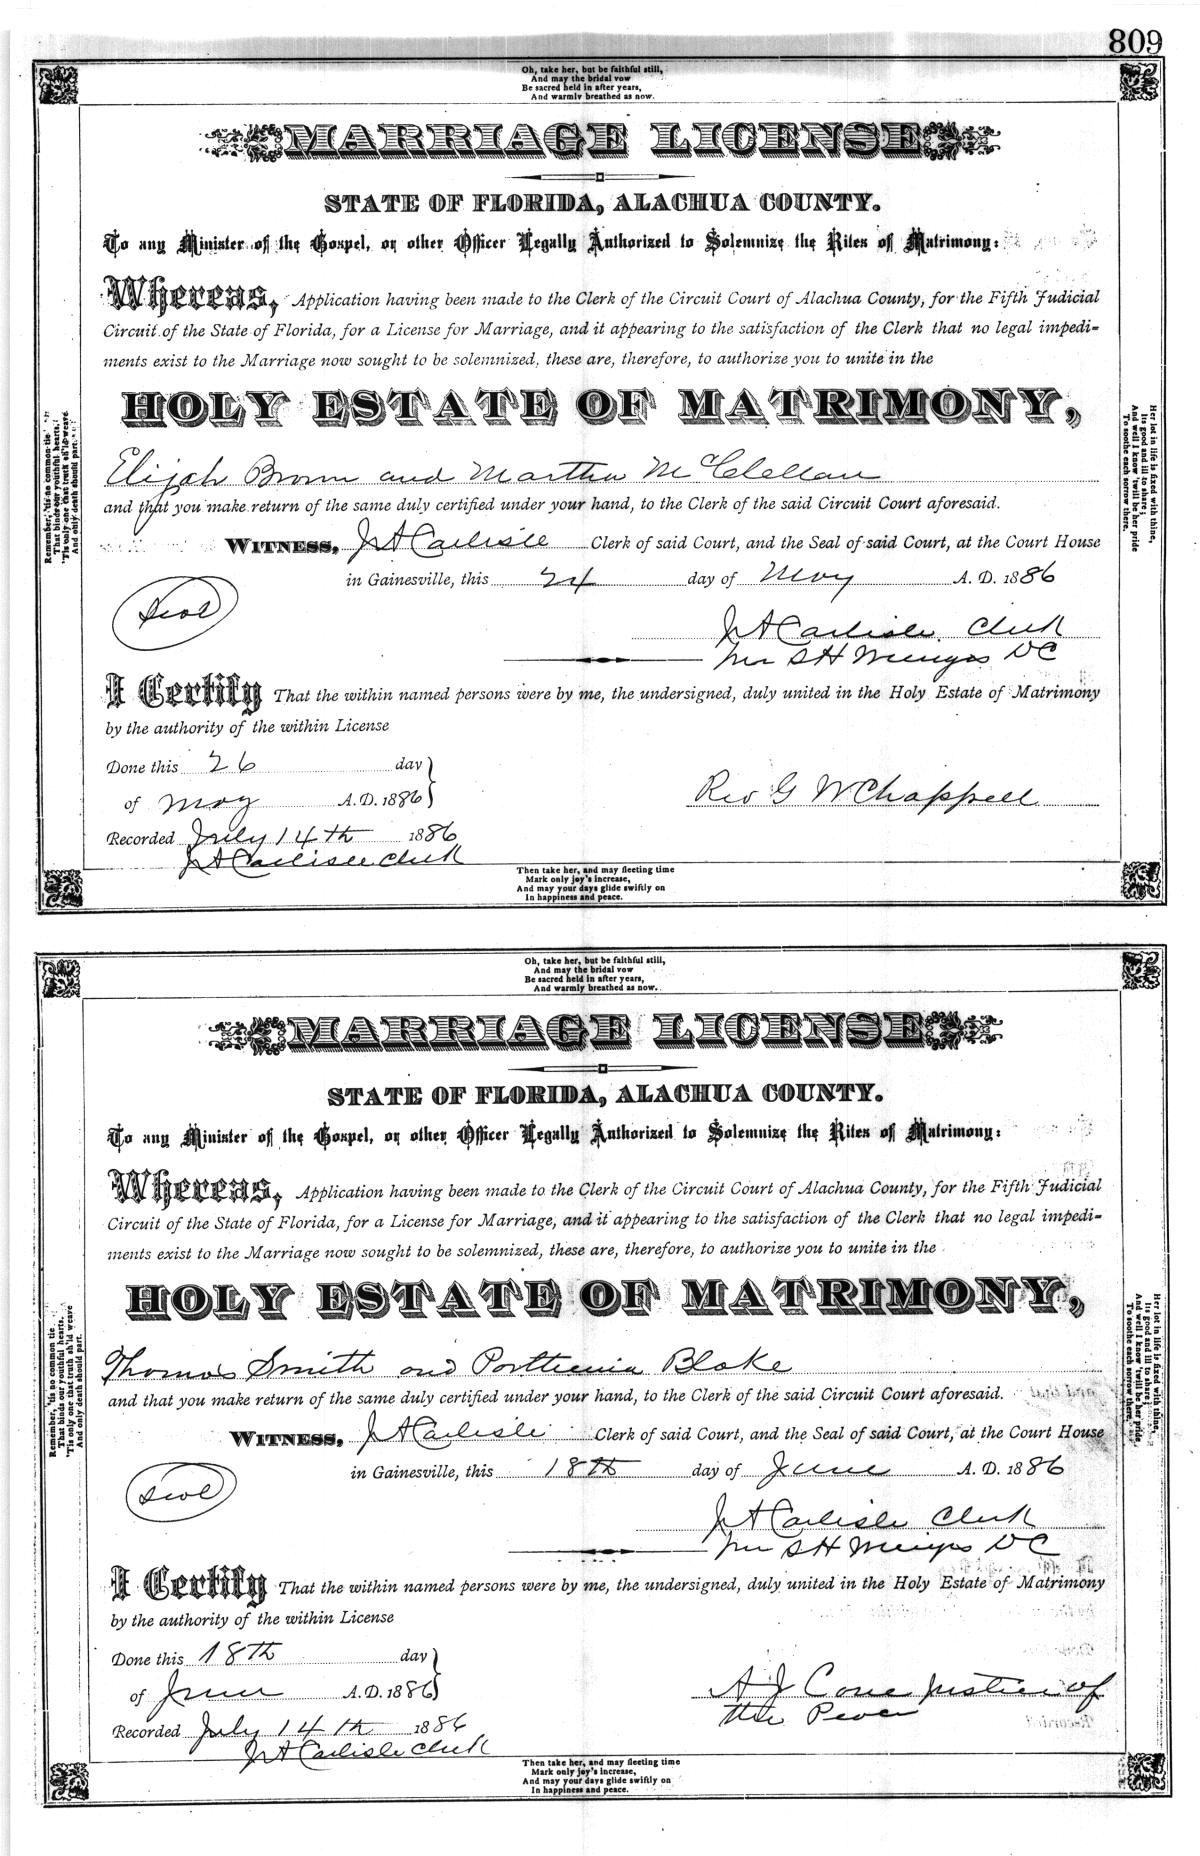 809
Oh, take her, but be faithful still,
And may the bridal vow
Be sacred held in after years,
And warmly breathed as now.
MARRIAGE LICENSE
STATE OF FLORIDA, ALACHUA COUNTY.
To any Minister of the Gospel, or other Officer Legally Authorized to Solemnize the Rites of Matrimony:
Whereas, Application having been made to the Clerk of the Circuit Court of Alachua County, for the Fifth Judicial
Circuit of the State of Florida, for a License for Marriage, and it appearing to the satisfaction of the Clerk that no legal impedi-
ments exist to the Marriage now sought to be solemnized, these are, therefore, to authorize you to unite in the
HOLY ESTATE OF MATRIMONY,
Elijah Brown and Martha McClellan
and that you make return of the same duly certified under your hand, to the Clerk of the said Circuit Court aforesaid.
WITNESS, J A Carlisle Clerk of said Court, and the Seal of said Court, at the Court House
in Gainesville, this 24 day of May A. D. 1886
Seal
J A Carlisle Clerk
per S H Wienges DC
I Certify That the within named persons were by me, the undersigned, duly united in the Holy Estate of Matrimony
by the authority of the within License
Done this 26 day
of May A.D. 1886
Rev G W Chappell
Recorded July 14th 1886
J A Carlisle Clerk
Then take her, and may fleeting time
Mark only joy's increase,
And may your days glide swiftly on
In happiness and peace.
Remember, 'tis no common tie
That binds our youthful hearts,
'Tis only one that truth sh'ld weave
And only death should part.
Her lot in life is fixed with thine,
Its good and ill to share;
And well I know 'twill be her pride
To soothe each sorrow there.
Oh, take her, but be faithful still,
And may the bridal vow
Be sacred held in after years,
And warmly breathed as now.
MARRIAGE LICENSE
STATE OF FLORIDA, ALACHUA COUNTY.
To any Minister of the Gospel, or other Officer Legally Authorized to Solemnize the Rites of Matrimony:
Whereas, Application having been made to the Clerk of the Circuit Court of Alachua County, for the Fifth Judicial
Circuit of the State of Florida, for a License for Marriage, and it appearing to the satisfaction of the Clerk that no legal impedi-
ments exist to the Marriage now sought to be solemnized, these are, therefore, to authorize you to unite in the
HOLY ESTATE OF MATRIMONY,
Thomas Smith and Porthenia Blake
and that you make return of the same duly certified under your hand, to the Clerk of the said Circuit Court aforesaid.
WITNESS, J A Carlisle Clerk of said Court, and the Seal of said Court, at the Court House
in Gainesville, this 18th day of June A. D. 1886
Seal
J A Carlisle Clerk
per S H Wienges DC
I Certify That the within named persons were by me, the undersigned, duly united in the Holy Estate of Matrimony
by the authority of the within License
Done this 18th day
of June A.D. 1886
A J Cone justice of
the Peace
Recorded July 14th 1886
J A Carlisle Clerk
Then take her, and may fleeting time
Mark only joy's increase,
And may your days glide swiftly on
In happiness and peace.
Remember, 'tis no common tie
That binds our youthful hearts,
'Tis only one that truth sh'ld weave
And only death should part.
Her lot in life is fixed with thine,
Its good and ill to share;
And well I know 'twill be her pride
To soothe each sorrow there.